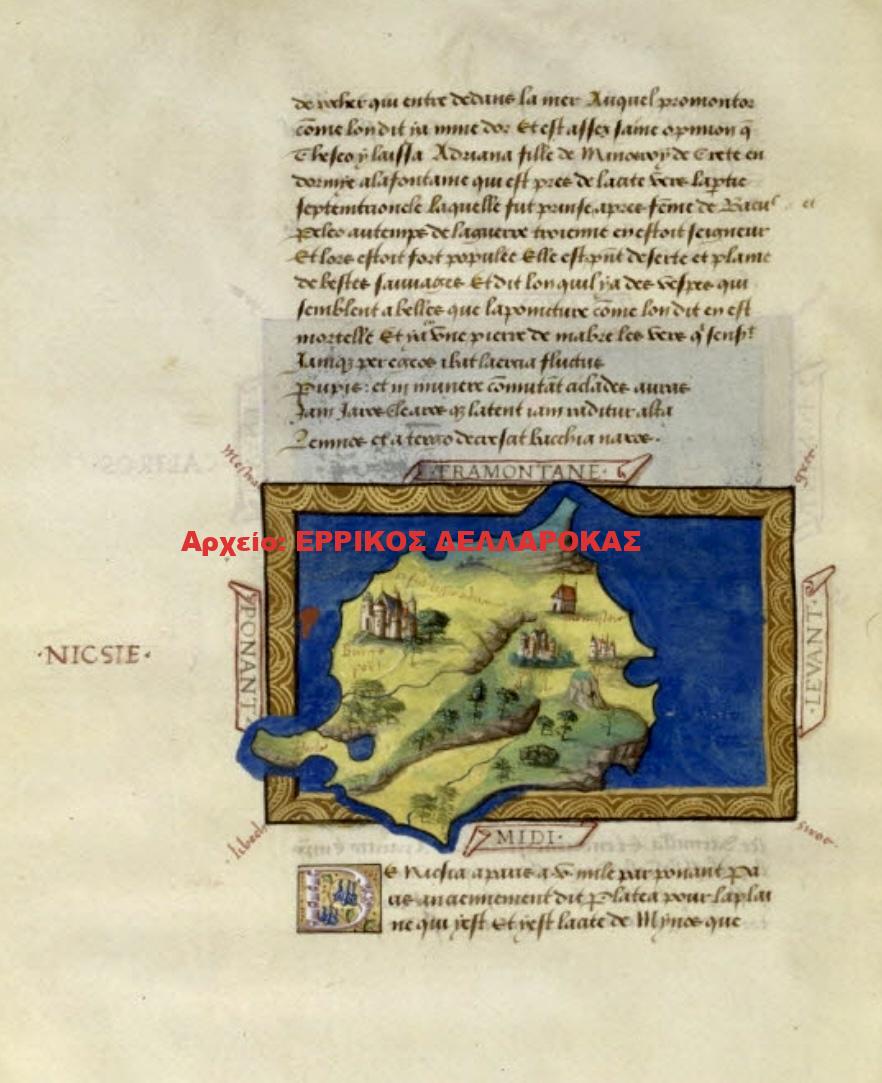 de rocher qui entre dedans la mer Auquel promontor
cõme lon dit ya mine dor Et est assez saine opinion q̃
Theseo y laissa Adriana fille de Minos roy de Crete en
dormye a la fontaine qui est pres de la cite vers la ptie
septemtrionele laquelle fut prinse apres fẽme de Bacu
Peleo au temps de la guerre troienne en estoit seigneur
Et lors estoit fort populee Elle est pñt deserte et plaine
de bestes sauvages Et dit lon quil ya des vespes qui
semblent abelles que la poncture cõme lon dit en est
mortelle Et ya vne pierre de mabre les vers
Iamq; per egeos ibat laercia fluctus
Pupis: et in munere cõmutãt aclades auras
Iam Iaros Clearos q; latent iam raditur alta
Lemnos et a tergo decrescat bacchia naxos.
·TRAMONTANE·
Αρχείο: ΕΡΡΙΚΟΣ ΔΕΛΛΑΡΟΚΑΣ
·NICSIE·
PONANT·
·LEVANT·
lebech
siroc
MIDI·
DE Nicsia a paris a v mile par ponant Pa
ris anciennement dit Platea pour la plai
ne qui yest Et yest la cite de Mynos que